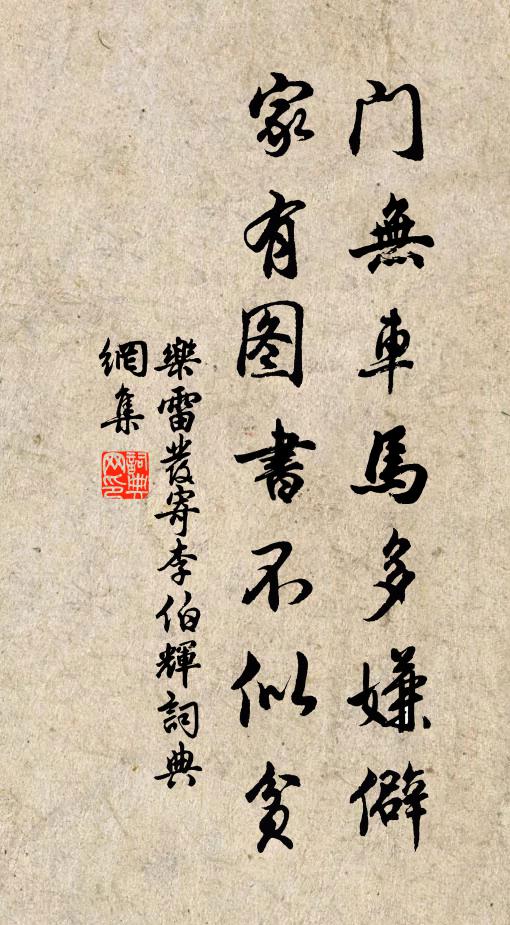 门無車馬多嫌僻
家有图書不似貧
樂雷發寄李伯輝詞典
網集
詞典网印